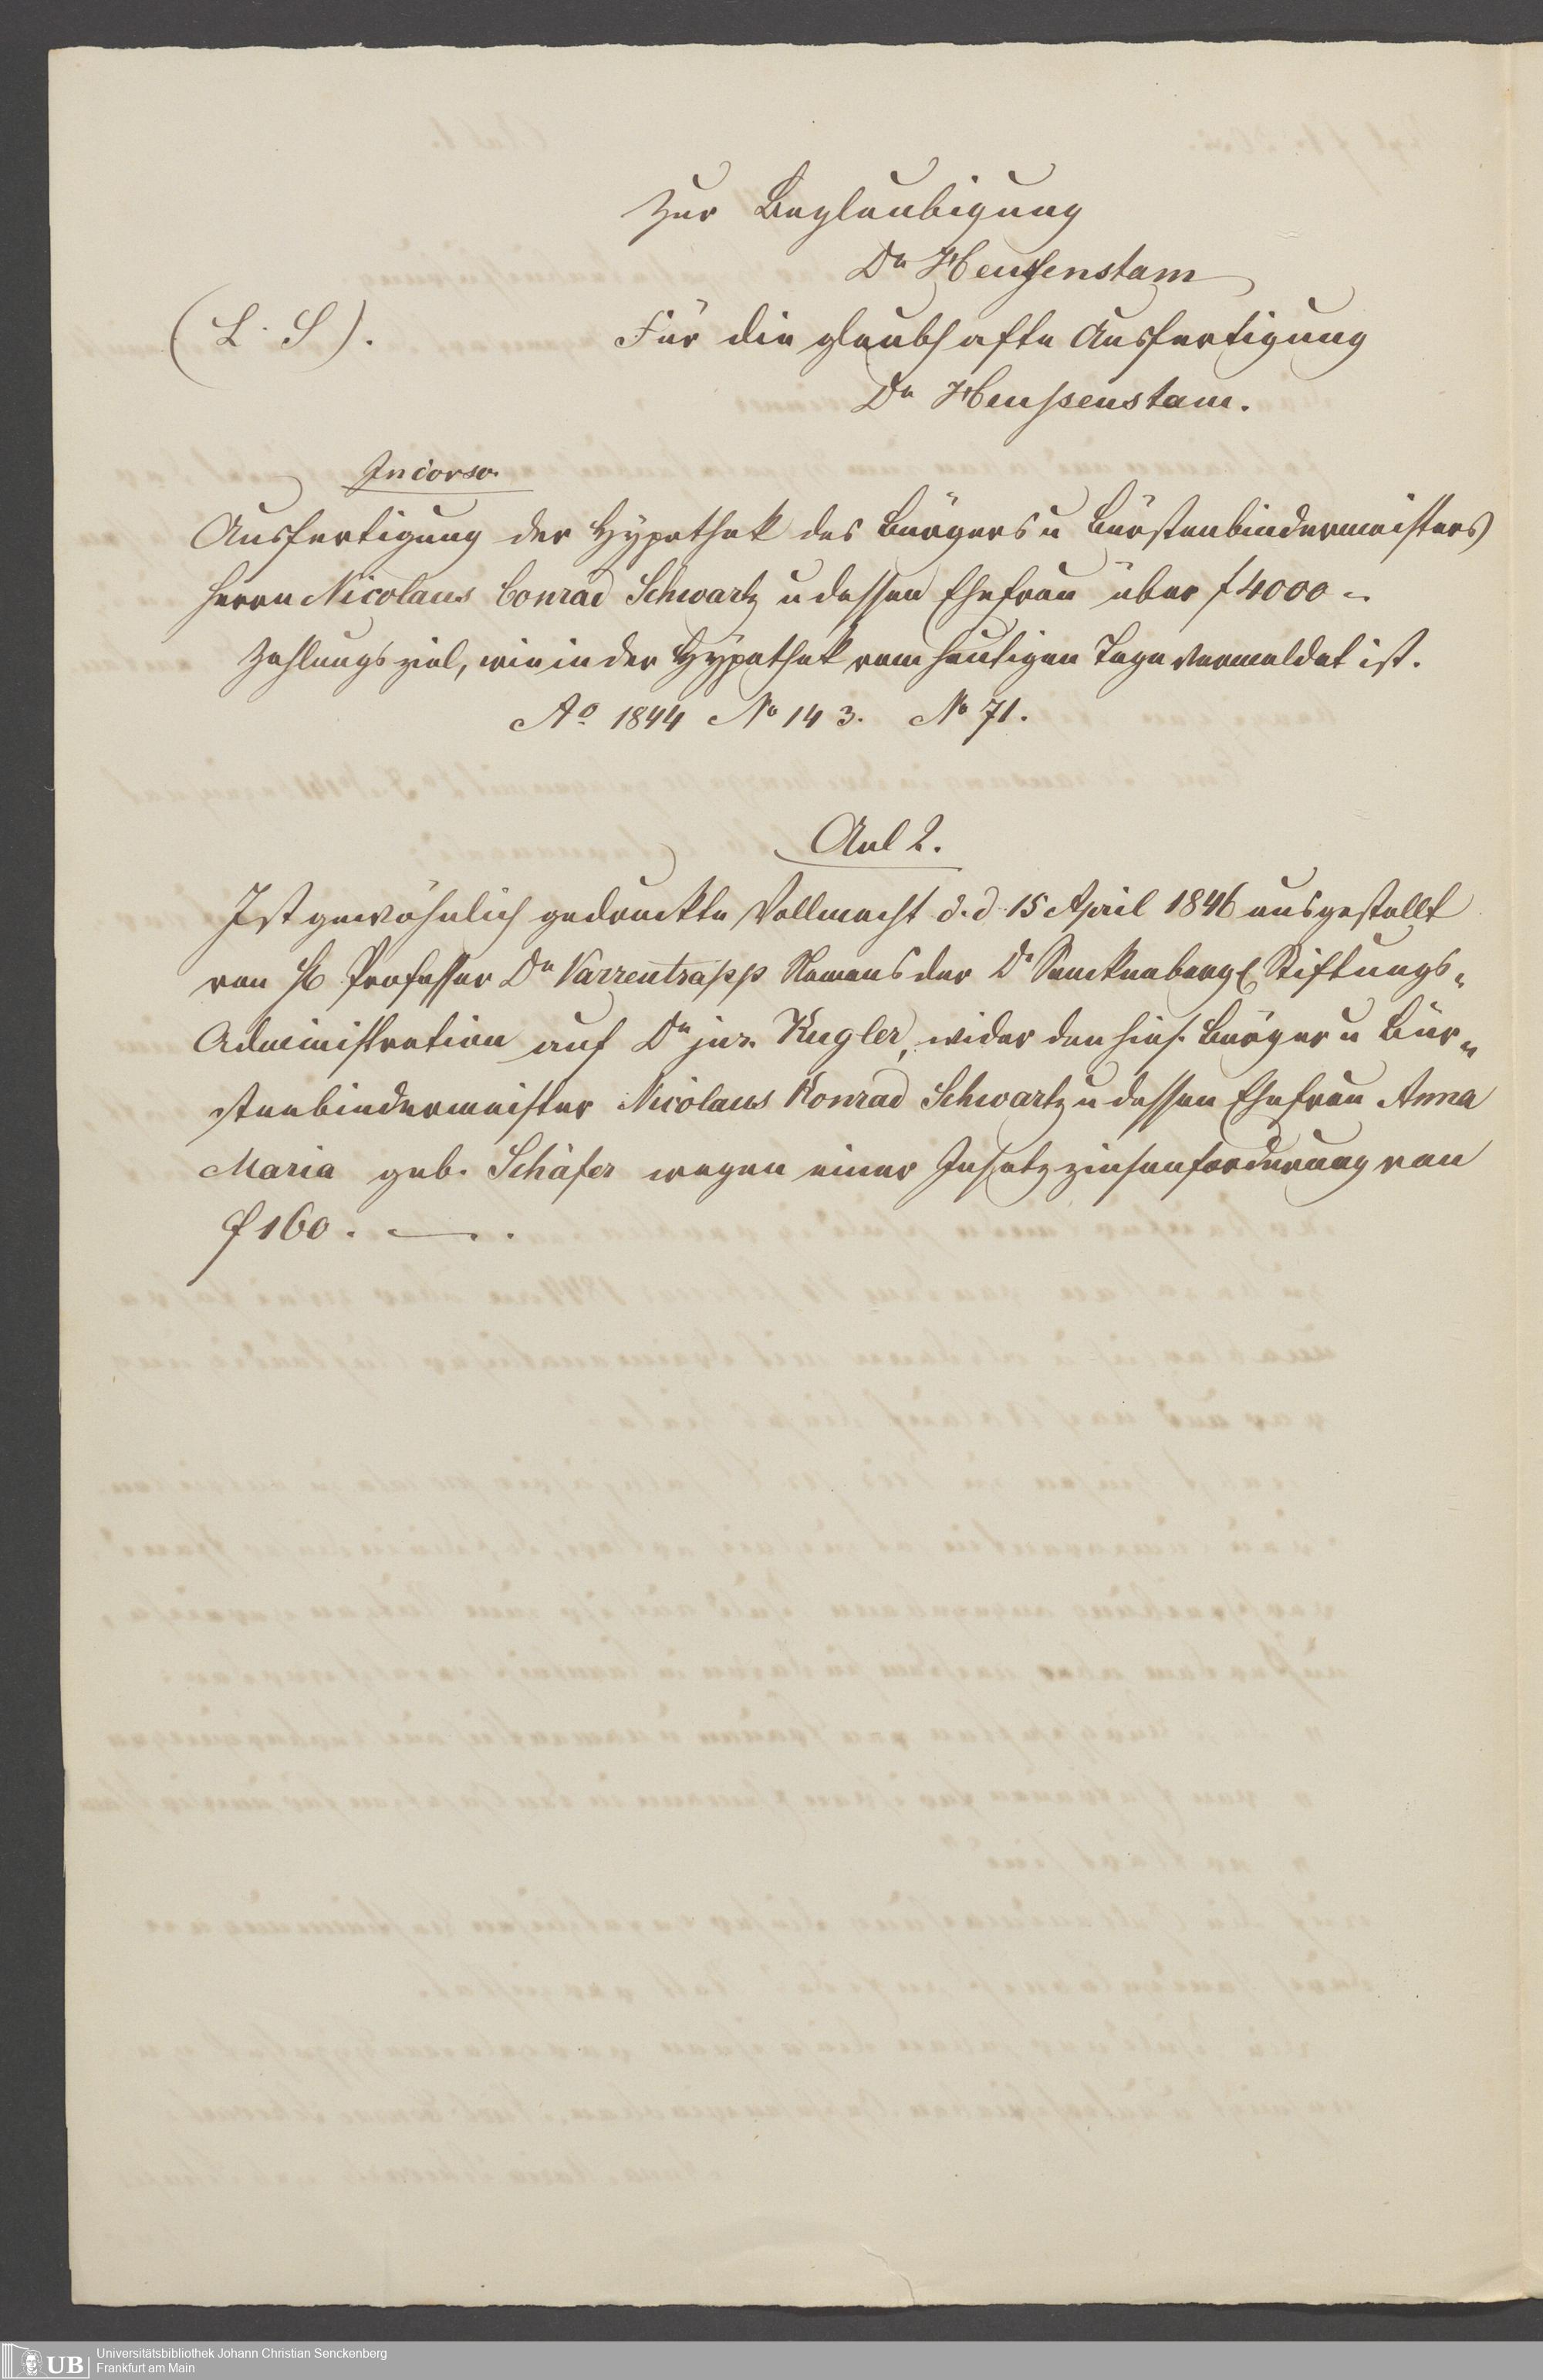 Zur Beglaubigung
Dr Heussenstam
(L. S).
Für die glaubhafte Ausfertigung
Dr Heussenstam.
In dorso.
Ausfertigung der Hypothek des Bürgers u Bürstenbindermeisters
Herrn Nicolaus Conrad Schwartz u dessen Ehefrau über f 4000 –.
Zahlungsziel, wie in der Hypothek vom heutigen Tage vermeldet ist.
Ao 1844 No 143. No 71.
Anl 2.
Ist gewöhnlich gedruckte Vollmacht d. d. 15 April 1846 ausgestellt
von H Professor Dr Varrentrapp Namens der Dr Senckenberg. Stiftungs-
Administration auf Dr jur. Kugler, wider den hies. Bürger u Bür-
stenbindermeister Nicolaus Konrad Schwartz u dessen Ehefrau Anna
Maria geb. Schäfer wegen einer Insatzzinsenforderung von
f 160. —.
Universitätsbibliothek Johann Christian Senckenberg
UB Frankfurt am Main